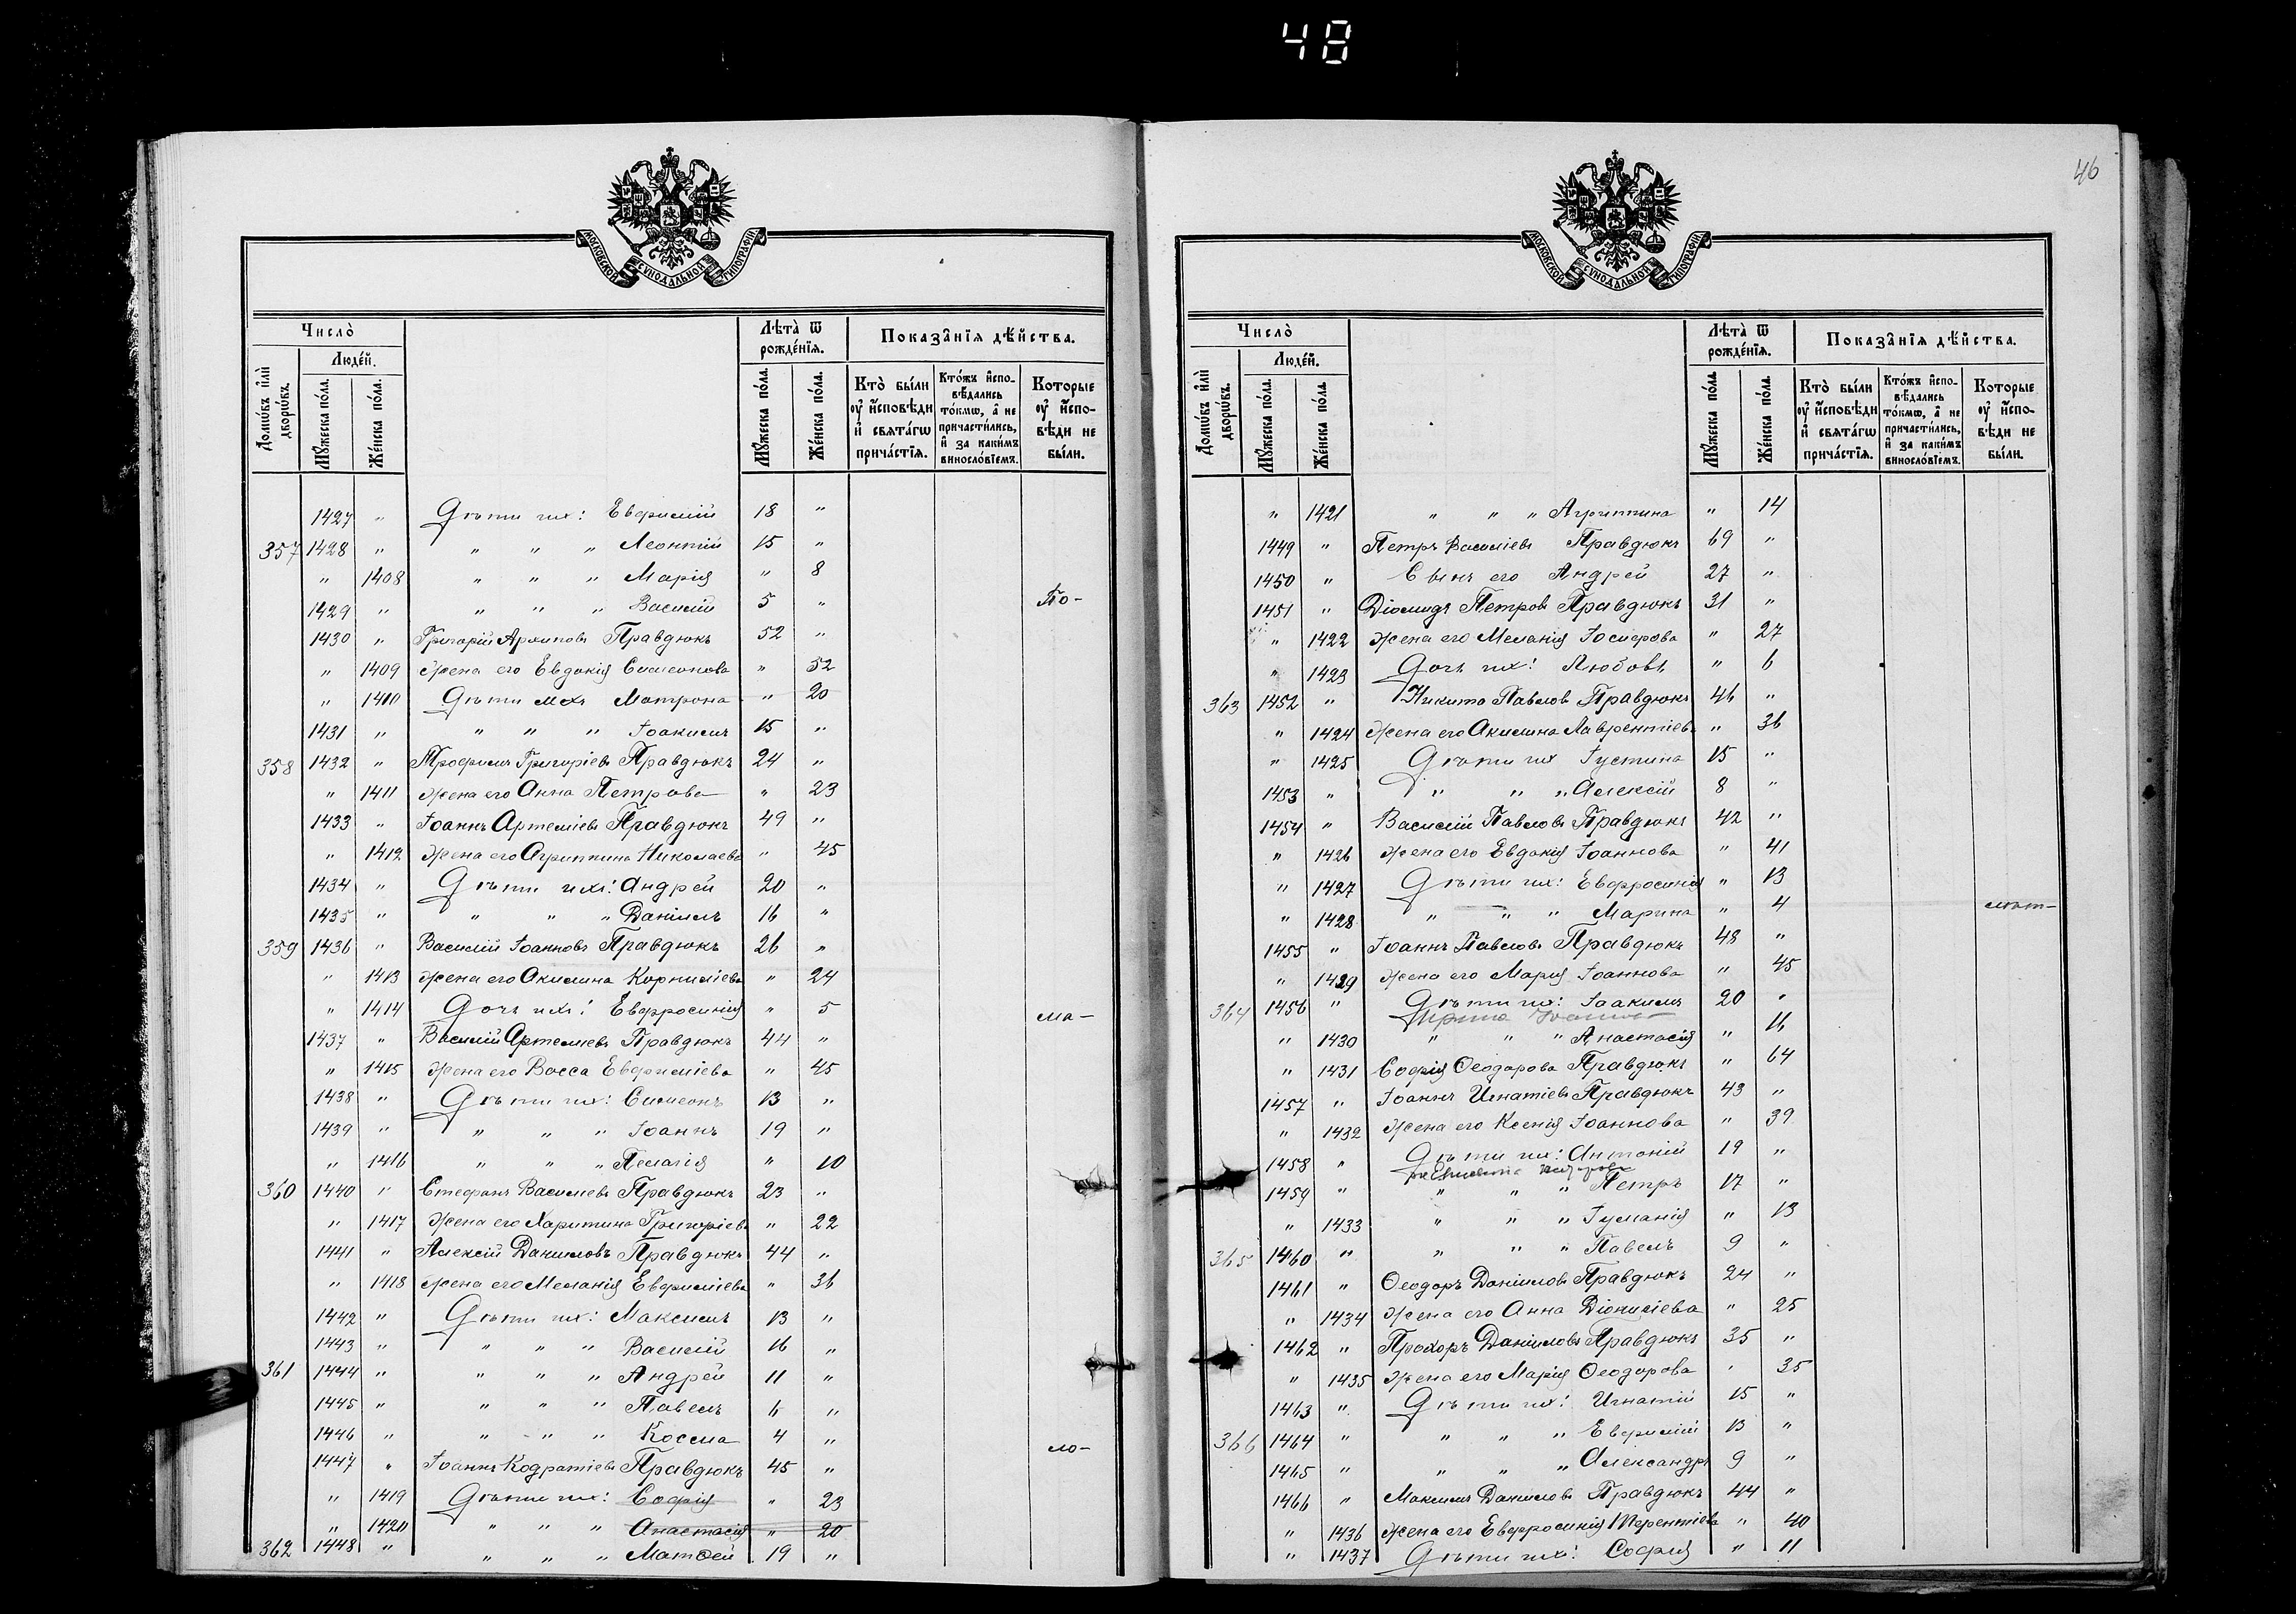 48
46
МОСКОВСКОЙ СУНОДАЛЬНОЙ ТИПОГРАФІИ
Число̀
Людéй.
Домѡ́въ и҆лѝ дворѡ́въ.
Мꙋ́жеска по́ла.
Же́нска по́ла.
Лѣта̀ ѿ рожде́нїя.
Мꙋ́жеска по́ла.
Же́нска по́ла.
Показа̑нїя дѣ́йства.
Кто̀ бы́ли ᲂу҆ и҆́сповѣди и҆ свята́гѡ прича́стїя.
Кто́жъ и҆спо-вѣ́дались то́кмѡ, а҆ не причасти́лись, и҆ за каки́мъ винослові́емъ.
Которые ᲂу҆ и҆́спо-вѣди не бы́ли.
1427 " Дѣти их: Евфимій 18 "
357 1428 " " " " Леонтій 15 "
" 1408 " " " Марія " 8
1429 " " " " Василій 5 " По-
1430 " Григорій Архиповъ Правдюкъ 52 "
" 1409 Жена его Евдокія Симеонова " 52
" 1410 Дѣти ихъ Матрона " 20
1431 " " " " Іоакимъ 15 "
358 1432 " Трофимъ Григоріевъ Правдюкъ 24 "
" 1411 Жена его Анна Петрова " 23
1433 " Іоаннъ Артеміевъ Правдюкъ 49 "
" 1412 Жена его Агриппина Николаева " 45
1434 " Дѣти ихъ: Андрей 20 "
1435 " " " " Даніилъ 16 "
359 1436 " Василій Іоанновъ Правдюкъ 26 "
" 1413 Жена его Акилина Корниліева " 24
" 1414 Дочь ихъ: Евфросинія " 5 ма-
1437 " Василій Артеміевъ Правдюкъ 44 "
" 1415 Жена его Васса Евфиміева " 45
1438 " Дѣти их: Симеонъ 13 "
1439 " " " " Іоаннъ 19 "
" 1416 " " " Пелагія " 10
360 1440 " Стефанъ Васильевъ Правдюкъ 23 "
" 1417 Жена его Харитина Григоріева " 22
1441 " Алексій Даниловъ Правдюкъ 44 "
" 1418 Жена его Меланія Евфиміева " 36
1442 " Дѣти их: Максимъ 13 "
1443 " " " " Василій 16 "
361 1444 " " " " Андрей 11 "
1445 " " " " Павелъ 6 "
1446 " " " " Косма 4 " ло-
1447 " Іоаннъ Кодратіевъ Правдюкъ 45 "
" 1419 Дѣти их: Софія " 23
" 1420 " " " Анастасія " 20
362 1448 " " " " Матѳей 19 "
Число̀
Людéй.
Домѡ́въ и҆лѝ дворѡ́въ.
Мꙋ́жеска по́ла.
Же́нска по́ла.
Лѣта̀ ѿ рожде́нїя.
Мꙋ́жеска по́ла.
Же́нска по́ла.
Показа̑нїя дѣ́йства.
Кто̀ бы́ли ᲂу҆ и҆́сповѣди и҆ свята́гѡ прича́стїя.
Кто́жъ и҆спо-вѣ́дались то́кмѡ, а҆ не причасти́лись, и҆ за каки́мъ винослові́емъ.
Которые ᲂу҆ и҆́спо-вѣди не бы́ли.
" 1421 " " " Агриппина " 14
1449 " Петръ Василіевъ Правдюкъ 69 "
1450 " Сынъ его Андрей 27 "
1451 " Діомидъ Петровъ Правдюкъ 31 "
" 1422 Жена его Меланія Іосифова " 27
" 1423 Дочь их: Любовь " 6
363 1452 " Никита Павловъ Правдюкъ 46 "
" 1424 Жена его Акилина Лаврентіева " 36
" 1425 Дѣти их Іустина 15 "
1453 " " " " Алексій 8 "
1454 " Василій Павловъ Правдюкъ 42 "
" 1426 Жена его Евдокія Іоаннова " 41
" 1427 Дѣти их: Евфросинія " 13
" 1428 " " " Марина " 4 лют-
1455 " Іоаннъ Павловъ Правдюкъ 48 "
" 1429 Жена его Марія Іоаннова " 45
364 1456 " Дѣти их: Іоакимъ 20 "
Ирина
" 1430 " " " Анастасія " 16
" 1431 Софія Ѳеодорова Правдюкъ " 64
1457 " Іоаннъ Игнатіевъ Правдюкъ 43 "
" 1432 Жена его Ксенія Іоаннова " 39
1458 " Дѣти их: Антоній 19 "
1459 " " " " Петръ 17 "
" 1433 " " " Іуліанія " 13
365 1460 " " " " Павелъ 9 "
1461 " Ѳеодоръ Даніиловъ Правдюкъ 24 "
" 1434 Жена его Анна Діонисіева " 25
1462 " Прохоръ Даніиловъ Правдюкъ 35 "
" 1435 Жена его Марія Ѳеодорова " 35
1463 " Дѣти их: Игнатій 15 "
366 1464 " " " " Евфимій 13 "
1465 " " " " Александръ 9 "
1466 " Максимъ Даниловъ Правдюкъ 44 "
" 1436 Жена его Евфросинія Терентіева " 40
" 1437 Дѣти их: Софія " 11